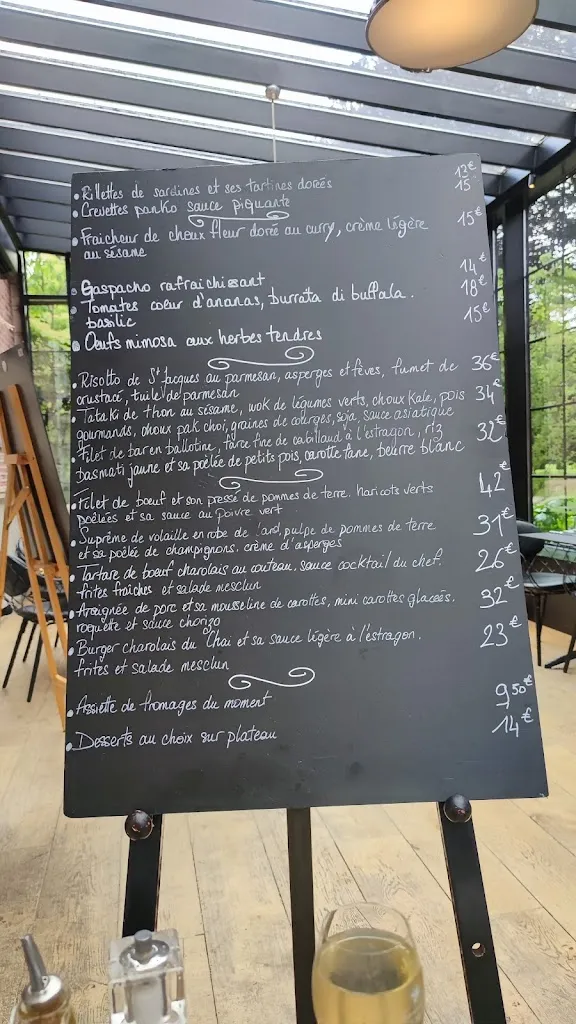 • Rillettes de sardines et ses tartines dorées 13€
• Crevettes panko sauce piquante 15
• Fraicheur de choux fleur doré au curry, crème légère 15€
au sésame
• Gaspacho rafraichissant 14€
• Tomates coeur d'ananas, burrata di buffala. 18€
basilic
• Oeufs mimosa aux herbes tendres 15€
• Risotto de St Jacques au parmesan, asperges et fèves, fumet de 36€
crustacé, tuile de parmesan
• Tataki de thon au sésame, wok de légumes verts, choux kale, pois 34€
gourmands, choux pak choi, graines de courges, soja, sauce asiatique
• Filet de bar en ballotine, farce fine de cabillaud à l'estragon, riz 32€
basmati jaune et sa poêlée de petits pois, carotte fane, beurre blanc
• Filet de boeuf et son pressé de pommes de terre. haricots verts 42€
poêlées et sa sauce au poivre vert
• Suprême de volaille en robe de lard, pulpe de pommes de terre 31€
et sa poêlée de champignons. crème d'asperges
• Tartare de boeuf charolais au couteau. sauce cocktail du chef. 26€
frites fraîches et salade mesclun
• Araignée de porc et sa mousseline de carottes, mini carottes glacées. 32€
roquette et sauce chorizo
• Burger charolais du Chai et sa sauce légère à l'estragon. 23€
frites et salade mesclun
• Assiette de fromages du moment 9,50€
• Desserts au choix sur plateau 14€